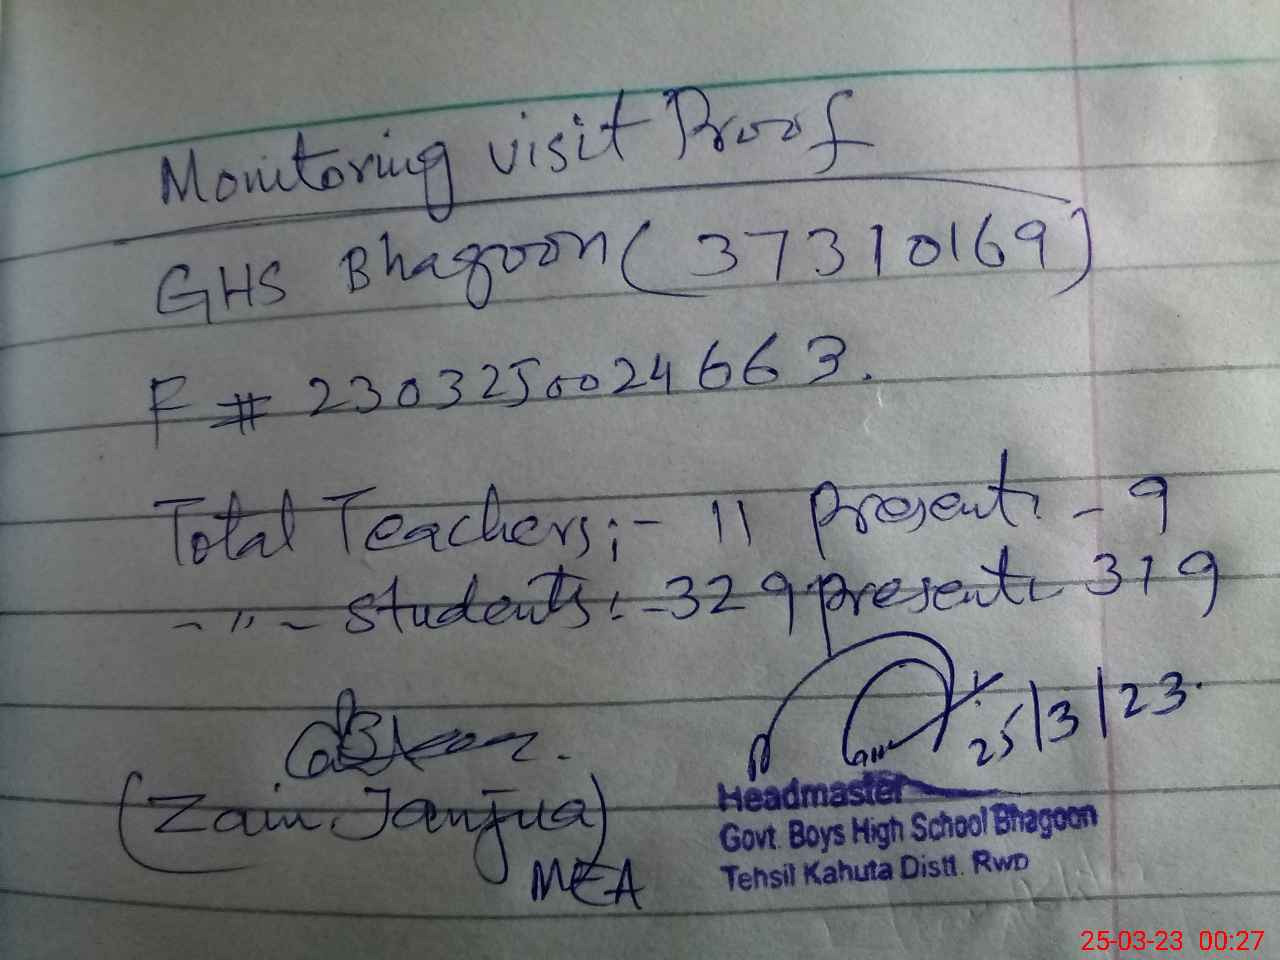 Monitoring visit Proof
GHS Bhagoon (37310169)
F # 2303250024663.
Total Teachers:- 11 Present:- 9
-"- Students:- 329 present:- 319
25/3/23.
(Zain Janjua)
MEA
Headmaster
Govt. Boys High School Bhagoon
Tehsil Kahuta Distt. RWD
25-03-23 00:27